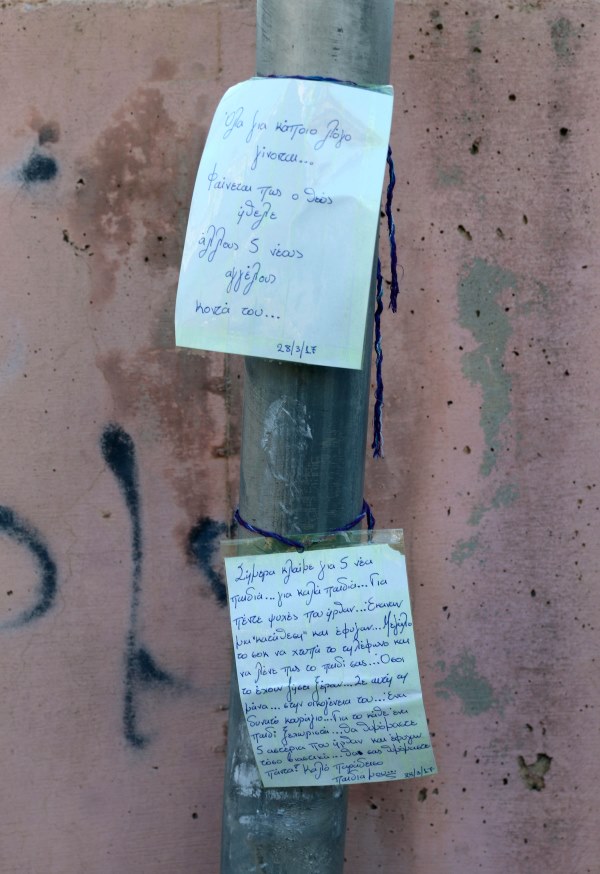 Όλα για κάποιο λόγο
γίνονται...
Φαίνεται πως ο Θεός
ήθελε
άλλους 5 νέους
αγγέλους
κοντά του...
28/3/17
Σήμερα κλαίμε για 5 νέα
παιδιά... για καλά παιδιά... Για
πέντε ψυχές που ήρθαν... Έκαναν
μια "κατάθεση" και έφυγαν... Μεγάλο
το σοκ να χτυπά το τηλέφωνο και
να λένε πως το παιδί σας... Όσοι
το έχουν ζήσει ξέραν... Σε αυτή τη
μάνα... στην οικογένεια του... ένα
δυνατό κουράγιο... Για το κάθε ένα
παιδί ξεχωριστά... θα θυμόμαστε
5 αστέρια που ήρθαν και έφυγαν
τόσο βιαστικά... θα σας θυμόμαστε
πάντα! Καλό παράδεισο
παιδιά μου 28/3/17